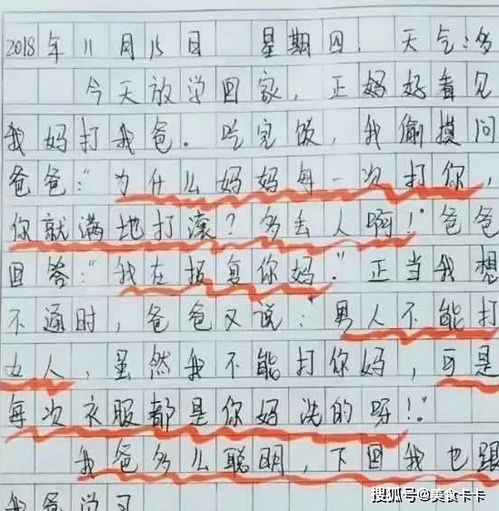 2018年11月15日 星期四. 天气:多
今天放学回家,正妈好看见
我妈打我爸。吃完饭,我偷摸问
爸爸:"为什么妈妈每一次打你,
你就满地打滚?多丢人啊!"爸爸
回答:"我在报复你妈。"正当我想
不通时,爸爸又说:"男人不能打
女人,虽然我不能打你妈,可是
每次衣服都是你妈洗的呀!"
我爸多么聪明,下回我也跟
我爸学习
搜狐号@美食卡卡